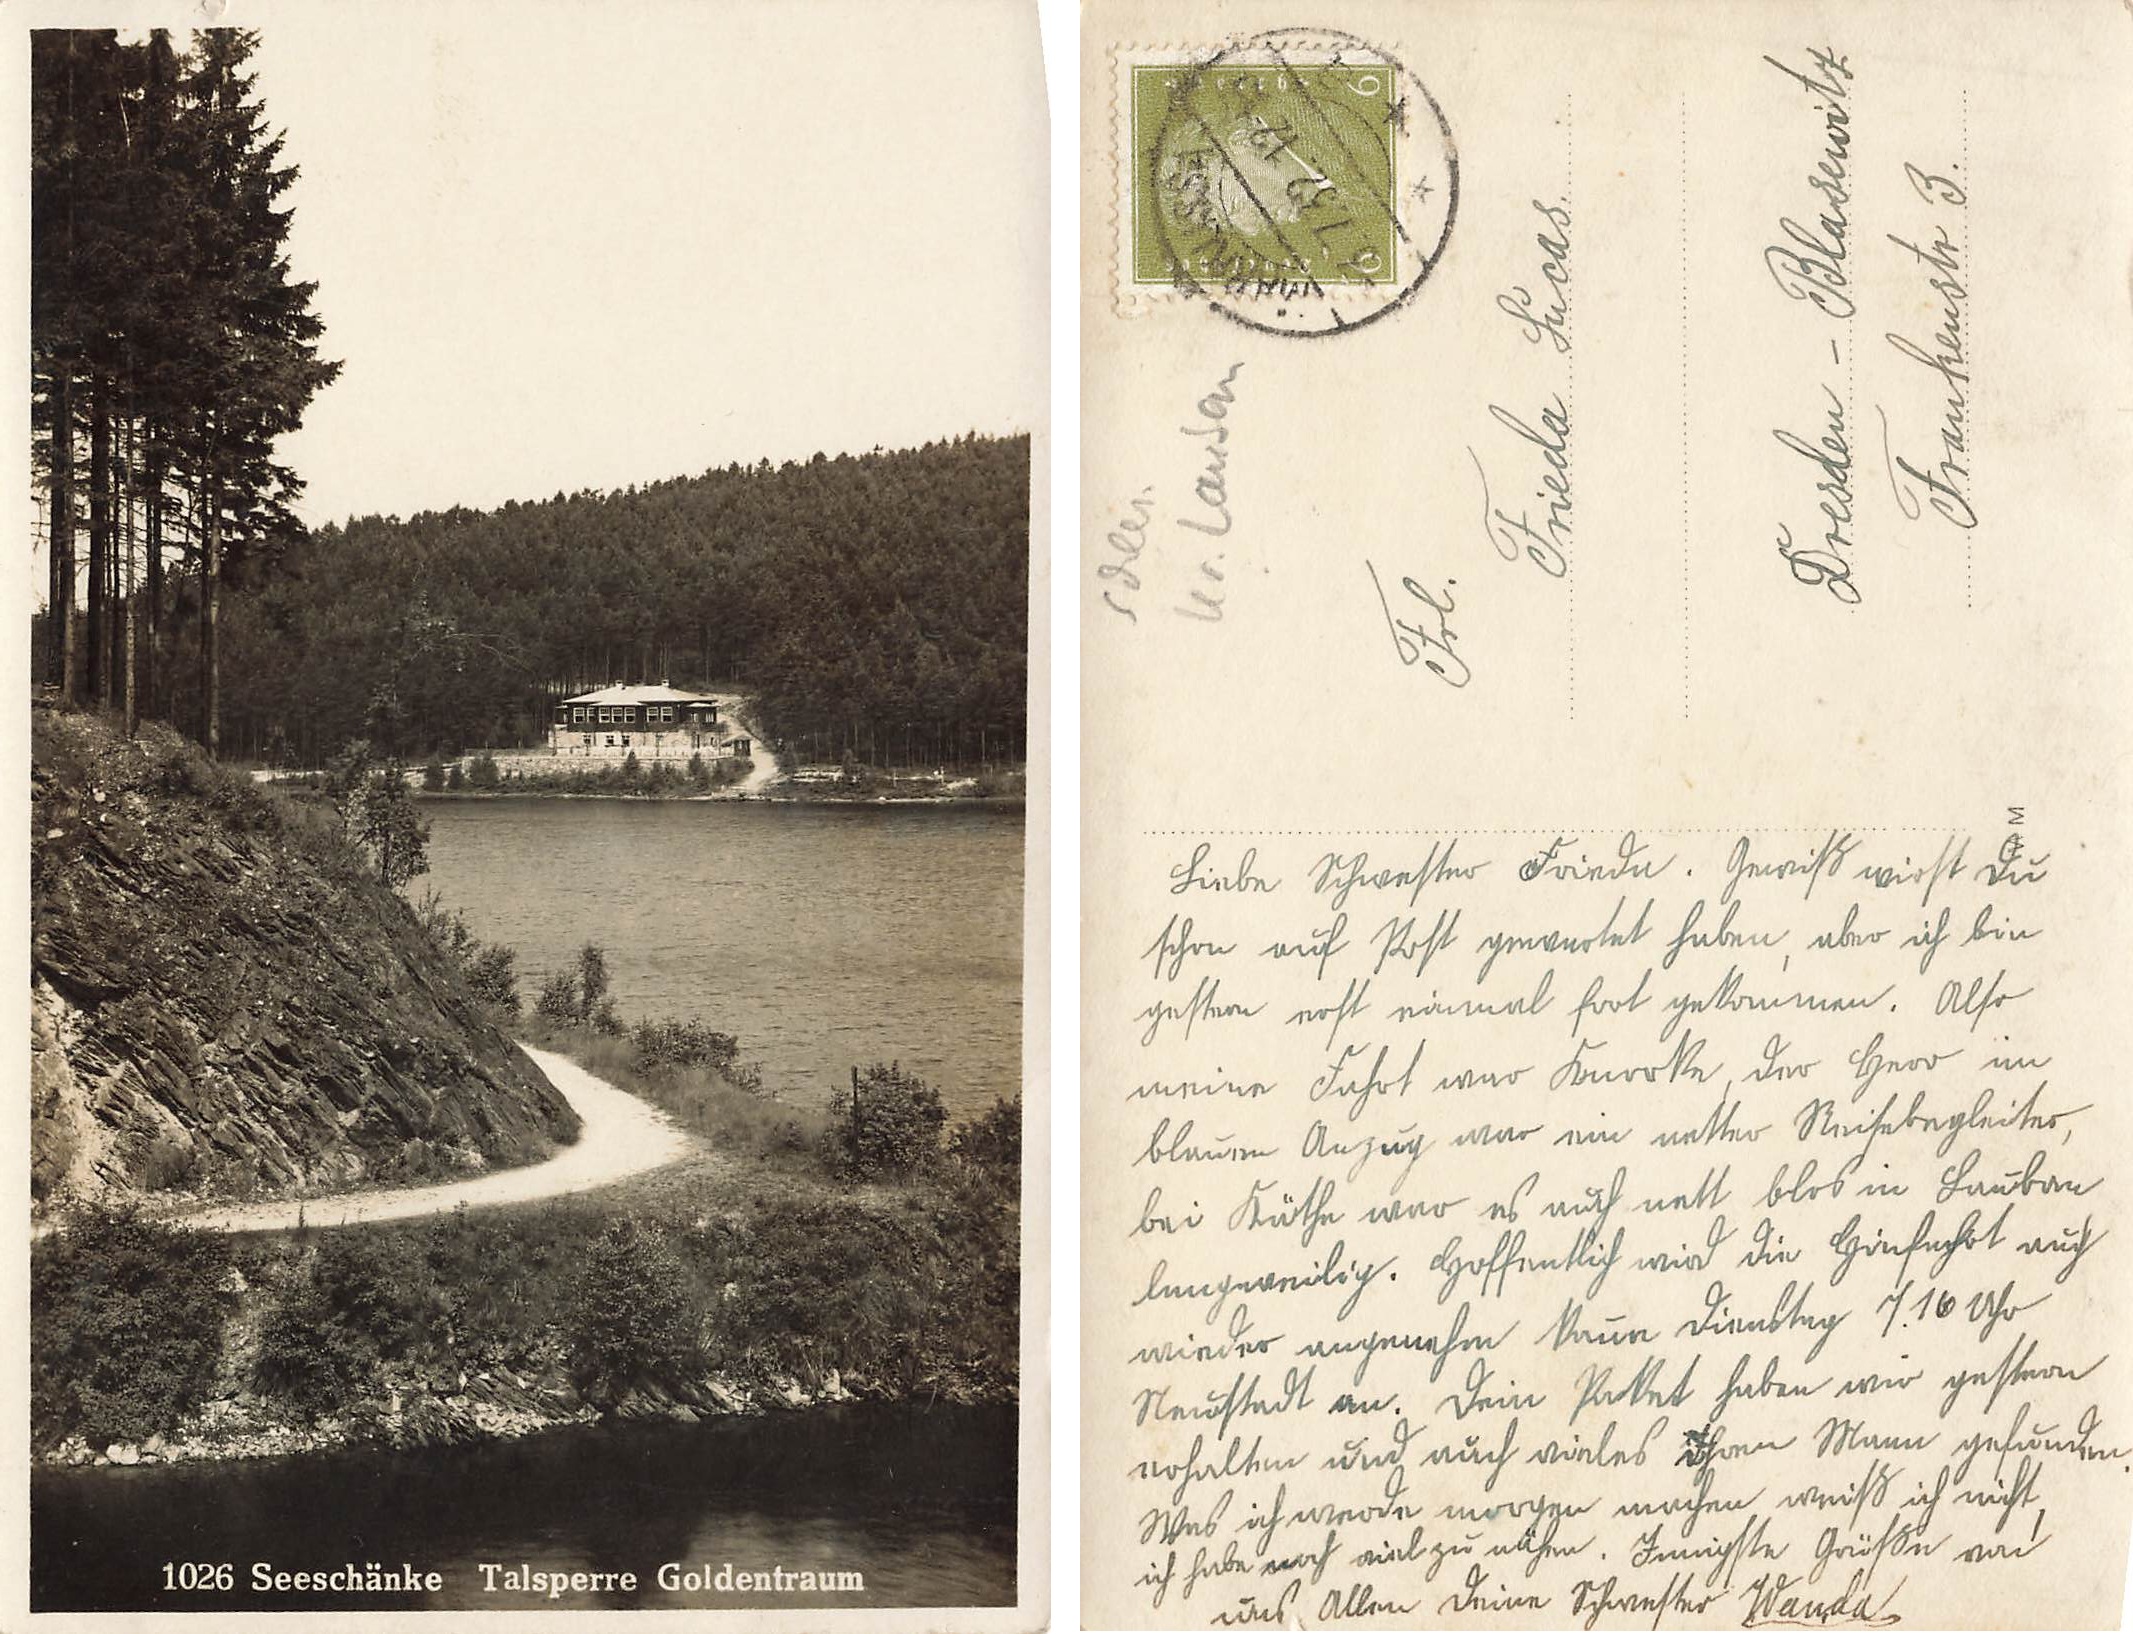 1026 Seeschänke Talsperre Goldentraum
6 6
7.32 12
Kr. Lauban
Frl.
Frieda Lucas.
Dresden - Blasewitz
Frankenstr 3.
Liebe Schwester Frieda. Gewiß wirst Du
schon auf Post gewartet haben, aber ich bin
gestern erst einmal fort gekommen. Also
meine Fahrt war Knorke, der Herr im
blauen Anzug war ein netter Reisebegleiter,
bei Käthe war es auch nett blos in Lauban
langweilig. Hoffentlich wird die Heimfahrt auch
wieder angenehm kaum Dienstag 7.16 Uhr
Neustadt an. Dein Paket haben wir gestern
erhalten und auch vieles ihren Mann gefunden.
Was ich werde morgen machen weiß ich nicht,
ich habe noch viel zu nähen. Innigste Grüße von
uns Allen Deine Schwester Wanda